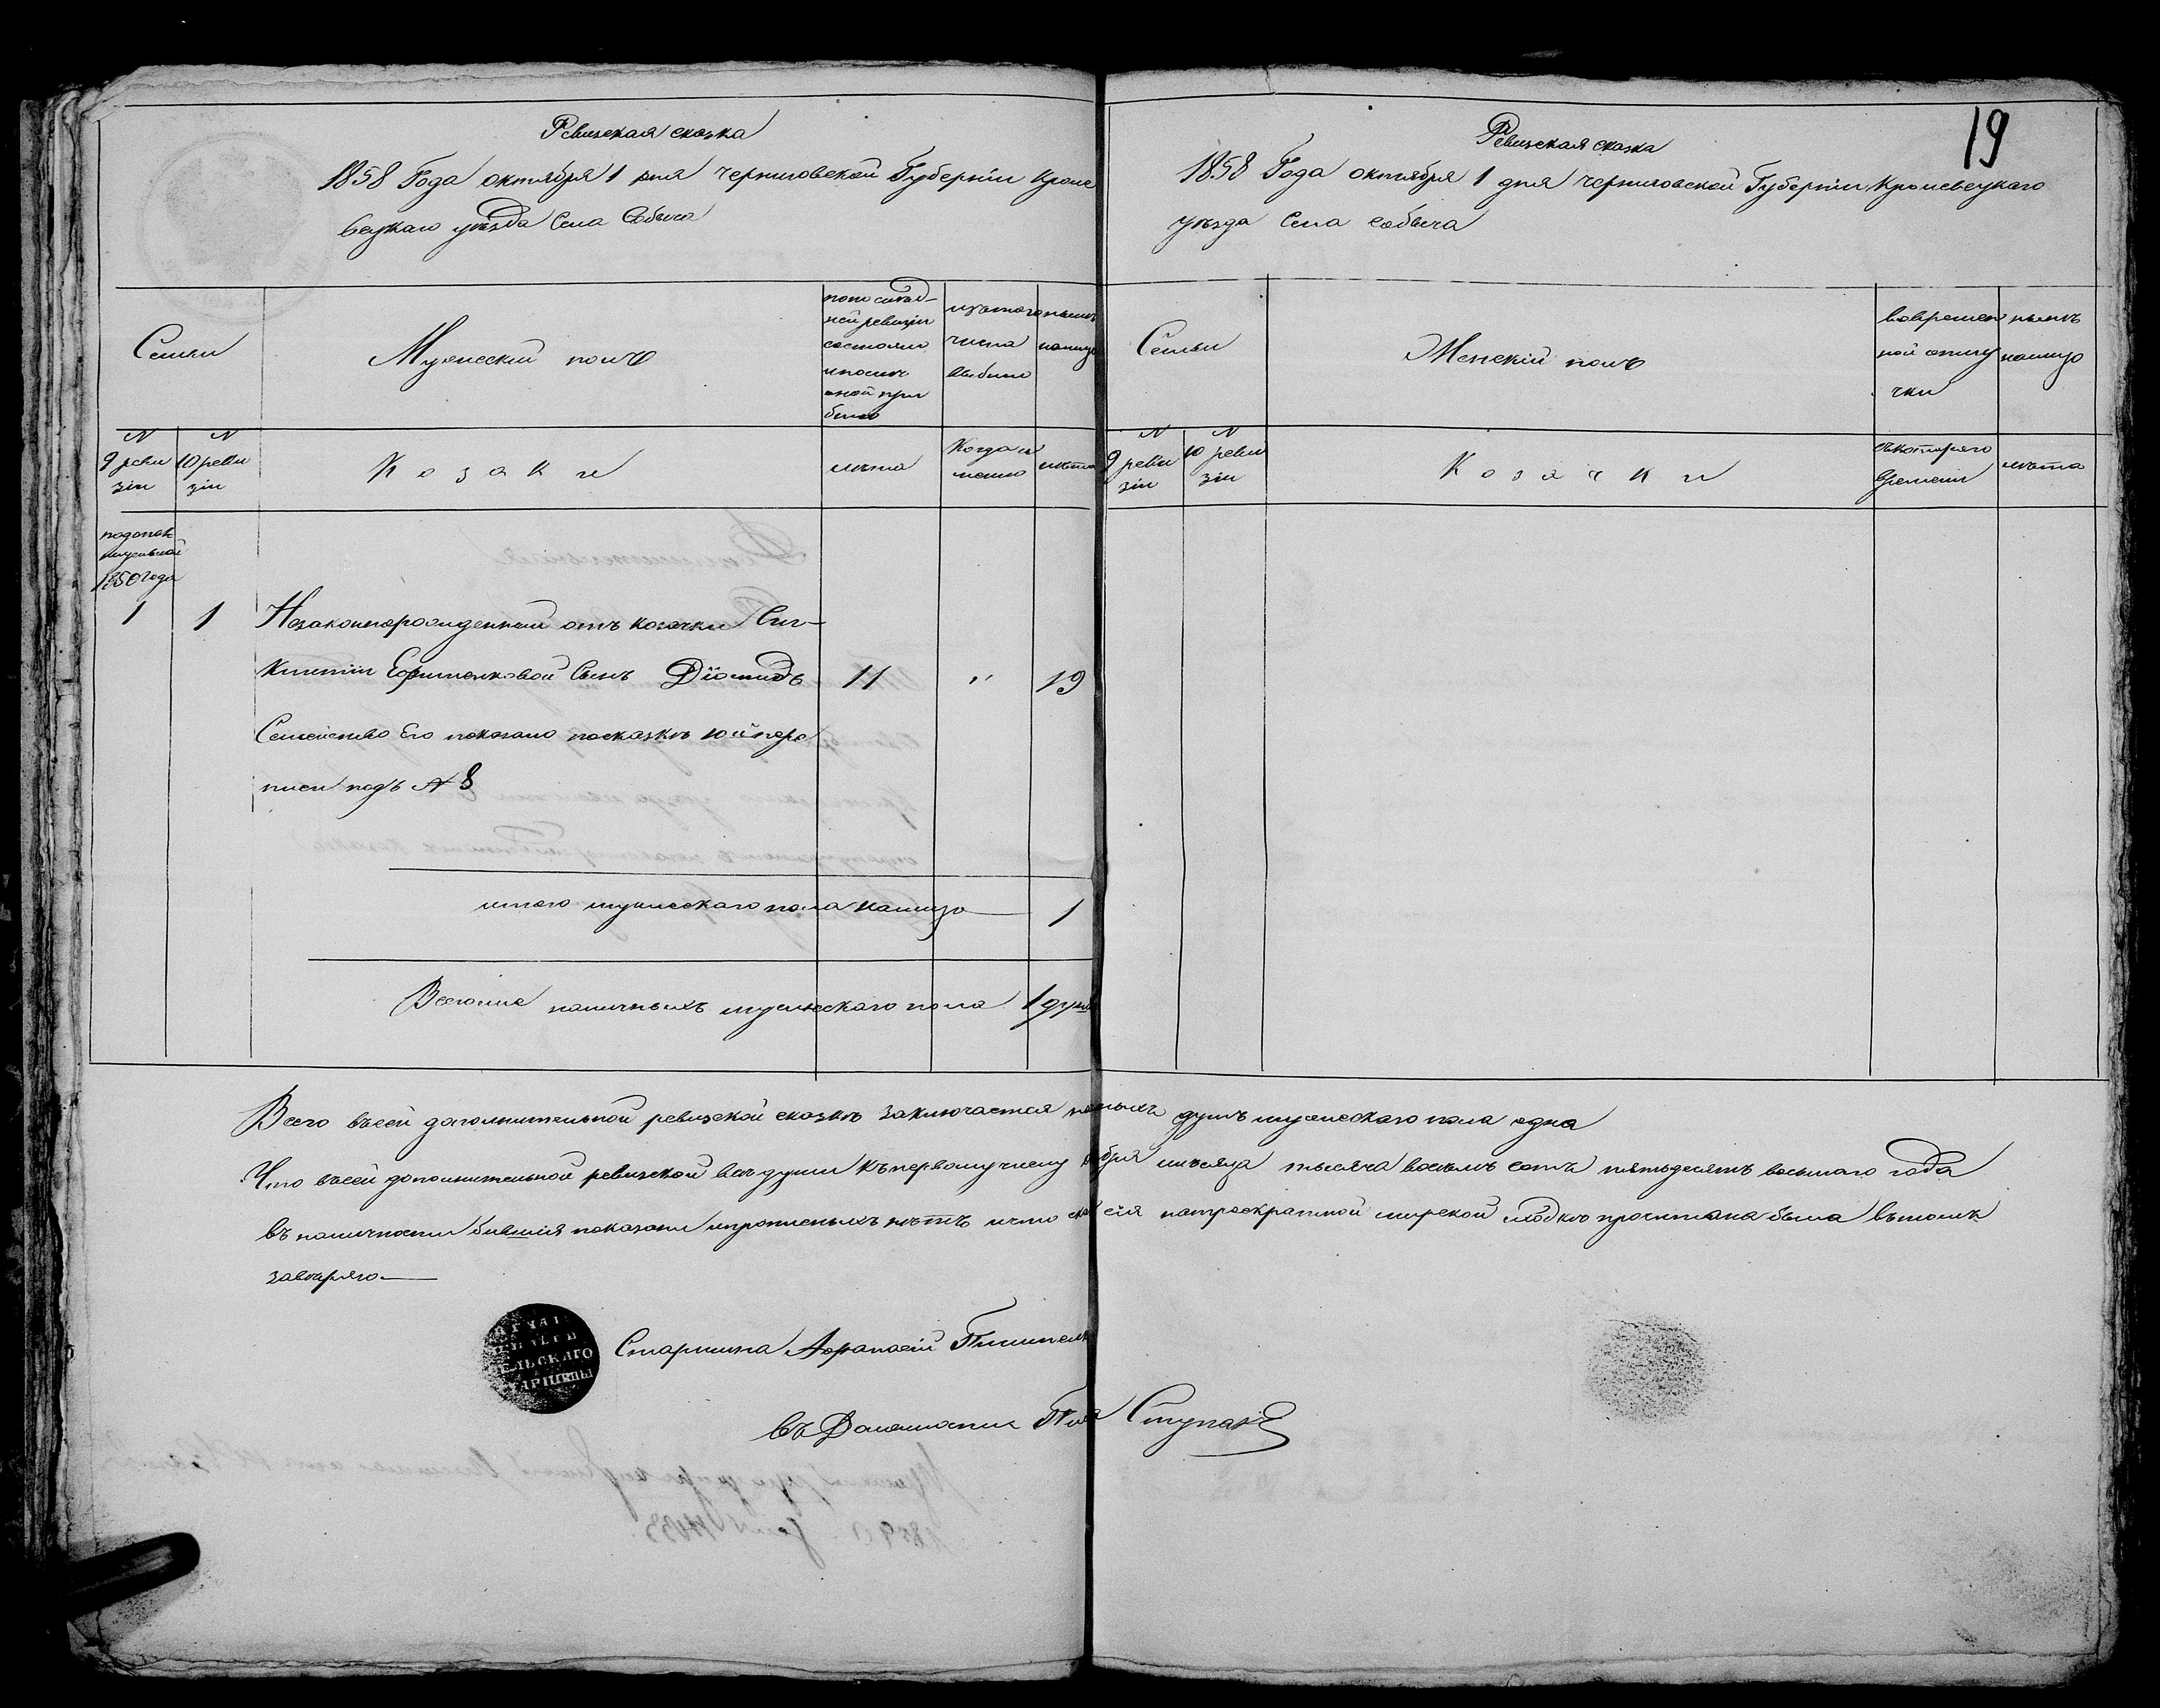 Ревизская сказка
1858 Года октября 1 дня Черниговской Губернии Кроле
вецкаго уѣзда Села Собыча
Семьи
Мужескій полъ
по послѣд-
ней ревизіи
состояло
и послѣ
оной при
было
изъ того
числа
выбыло
нынѣ
на лицо
N
9 реви
зіи
N
10 реви
зіи
Козаки
лѣта
Когда и
менно
лѣта
по допол
нительной
1850 года
1 1 Незаконнорожденный отъ козачки
Ефименковой Сынъ Діомидъ 11 " 19
Семейство Его показано по сказкѣ 10й пере
писи подъ N 8
итого мужескаго пола на лицо 1
Всего же наличныхъ мужескаго пола 1 душа
19
Ревизская сказка
1858 Года октября 1 дня Черниговской Губерніи Кролевецкаго
уѣзда Села Собыча
Семьи
Женскій полъ
во времен
ной отлу
чки
нынѣ
на лицо
N
9 реви
зіи
N
10 реви
зіи
Козачки
съ котораго
времени
лѣта
Всего въ сей дополнительной ревизской сказкѣ заключается душъ мужескаго пола одна
Что въ сей дополнительной ревизской всѣ души къ первому числу мѣсяца тысяча восемь сотъ пятьдесятъ восьмаго года
въ наличности бывшія показаны и прописныхъ нѣтъ и что сія на троекратной мирской сходкѣ прочитана была въ томъ
завѣряю
Старшина Афанасій
въ Должности Ступакъ